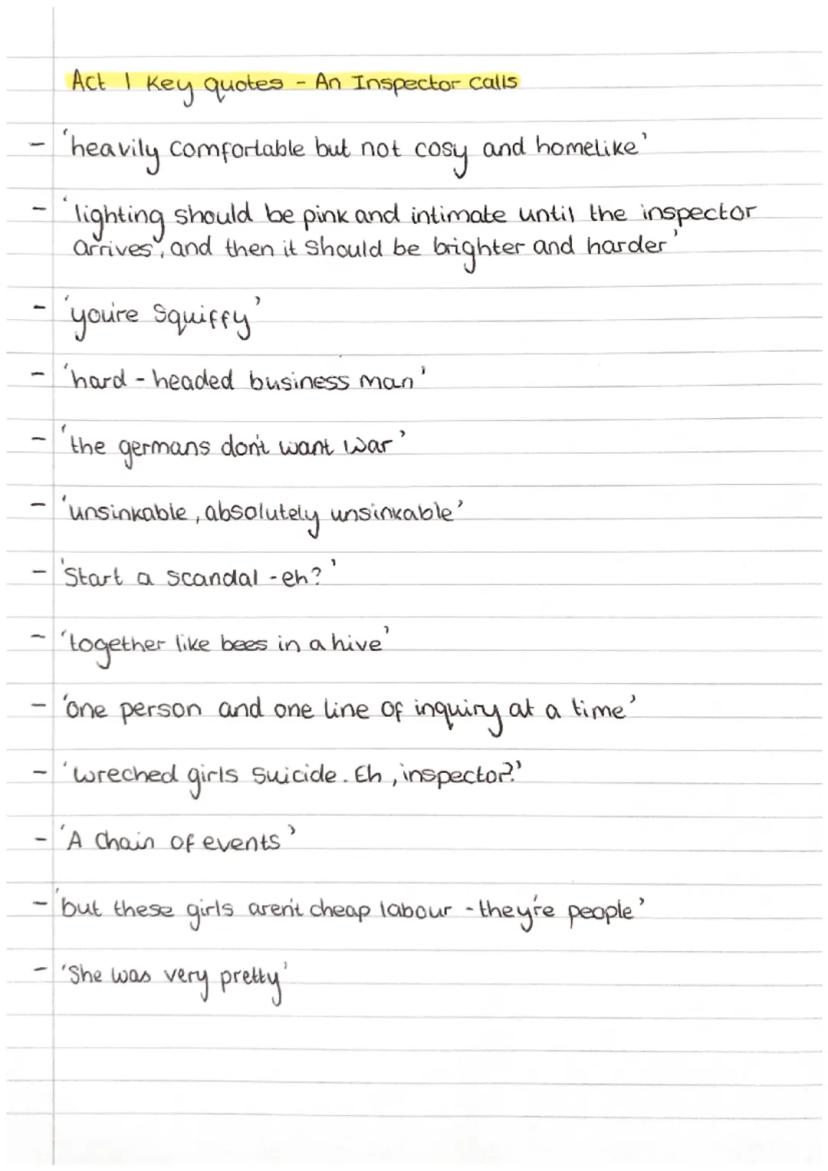 Act 1 Key quotes - An Inspector calls
- 'heavily comfortable but not cosy and homelike'
- 'lighting should be pink and intimate until the inspector
arrives', and then it should be brighter and harder'
- 'you're squiffy'
- 'hard-headed business man'
- 'the germans don't want war'
- 'unsinkable, absolutely unsinkable'
- 'Start a scandal - eh?'
- 'together like bees in a hive'
- 'one person and one line of inquiry at a time'
- 'wreched girls suicide. Eh, inspector?'
- 'A chain of events'
- 'but these girls aren't cheap labour - they're people'
- 'She was very pretty'